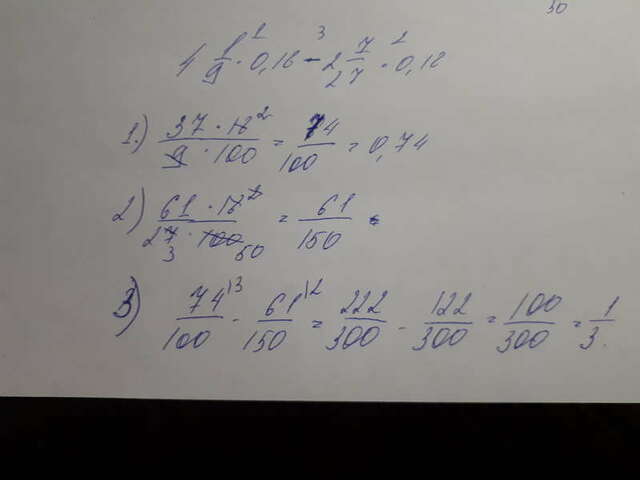 30
4 1/9 · 0,18 − 2 7/27 · 0,18
1.) 37 · 18 / 9 · 100 = 74/100 = 0,74
2) 61 · 18 / 27 · 100 = 61/150
3) 74/100 - 61/150 = 222/300 - 122/300 = 100/300 = 1/3.